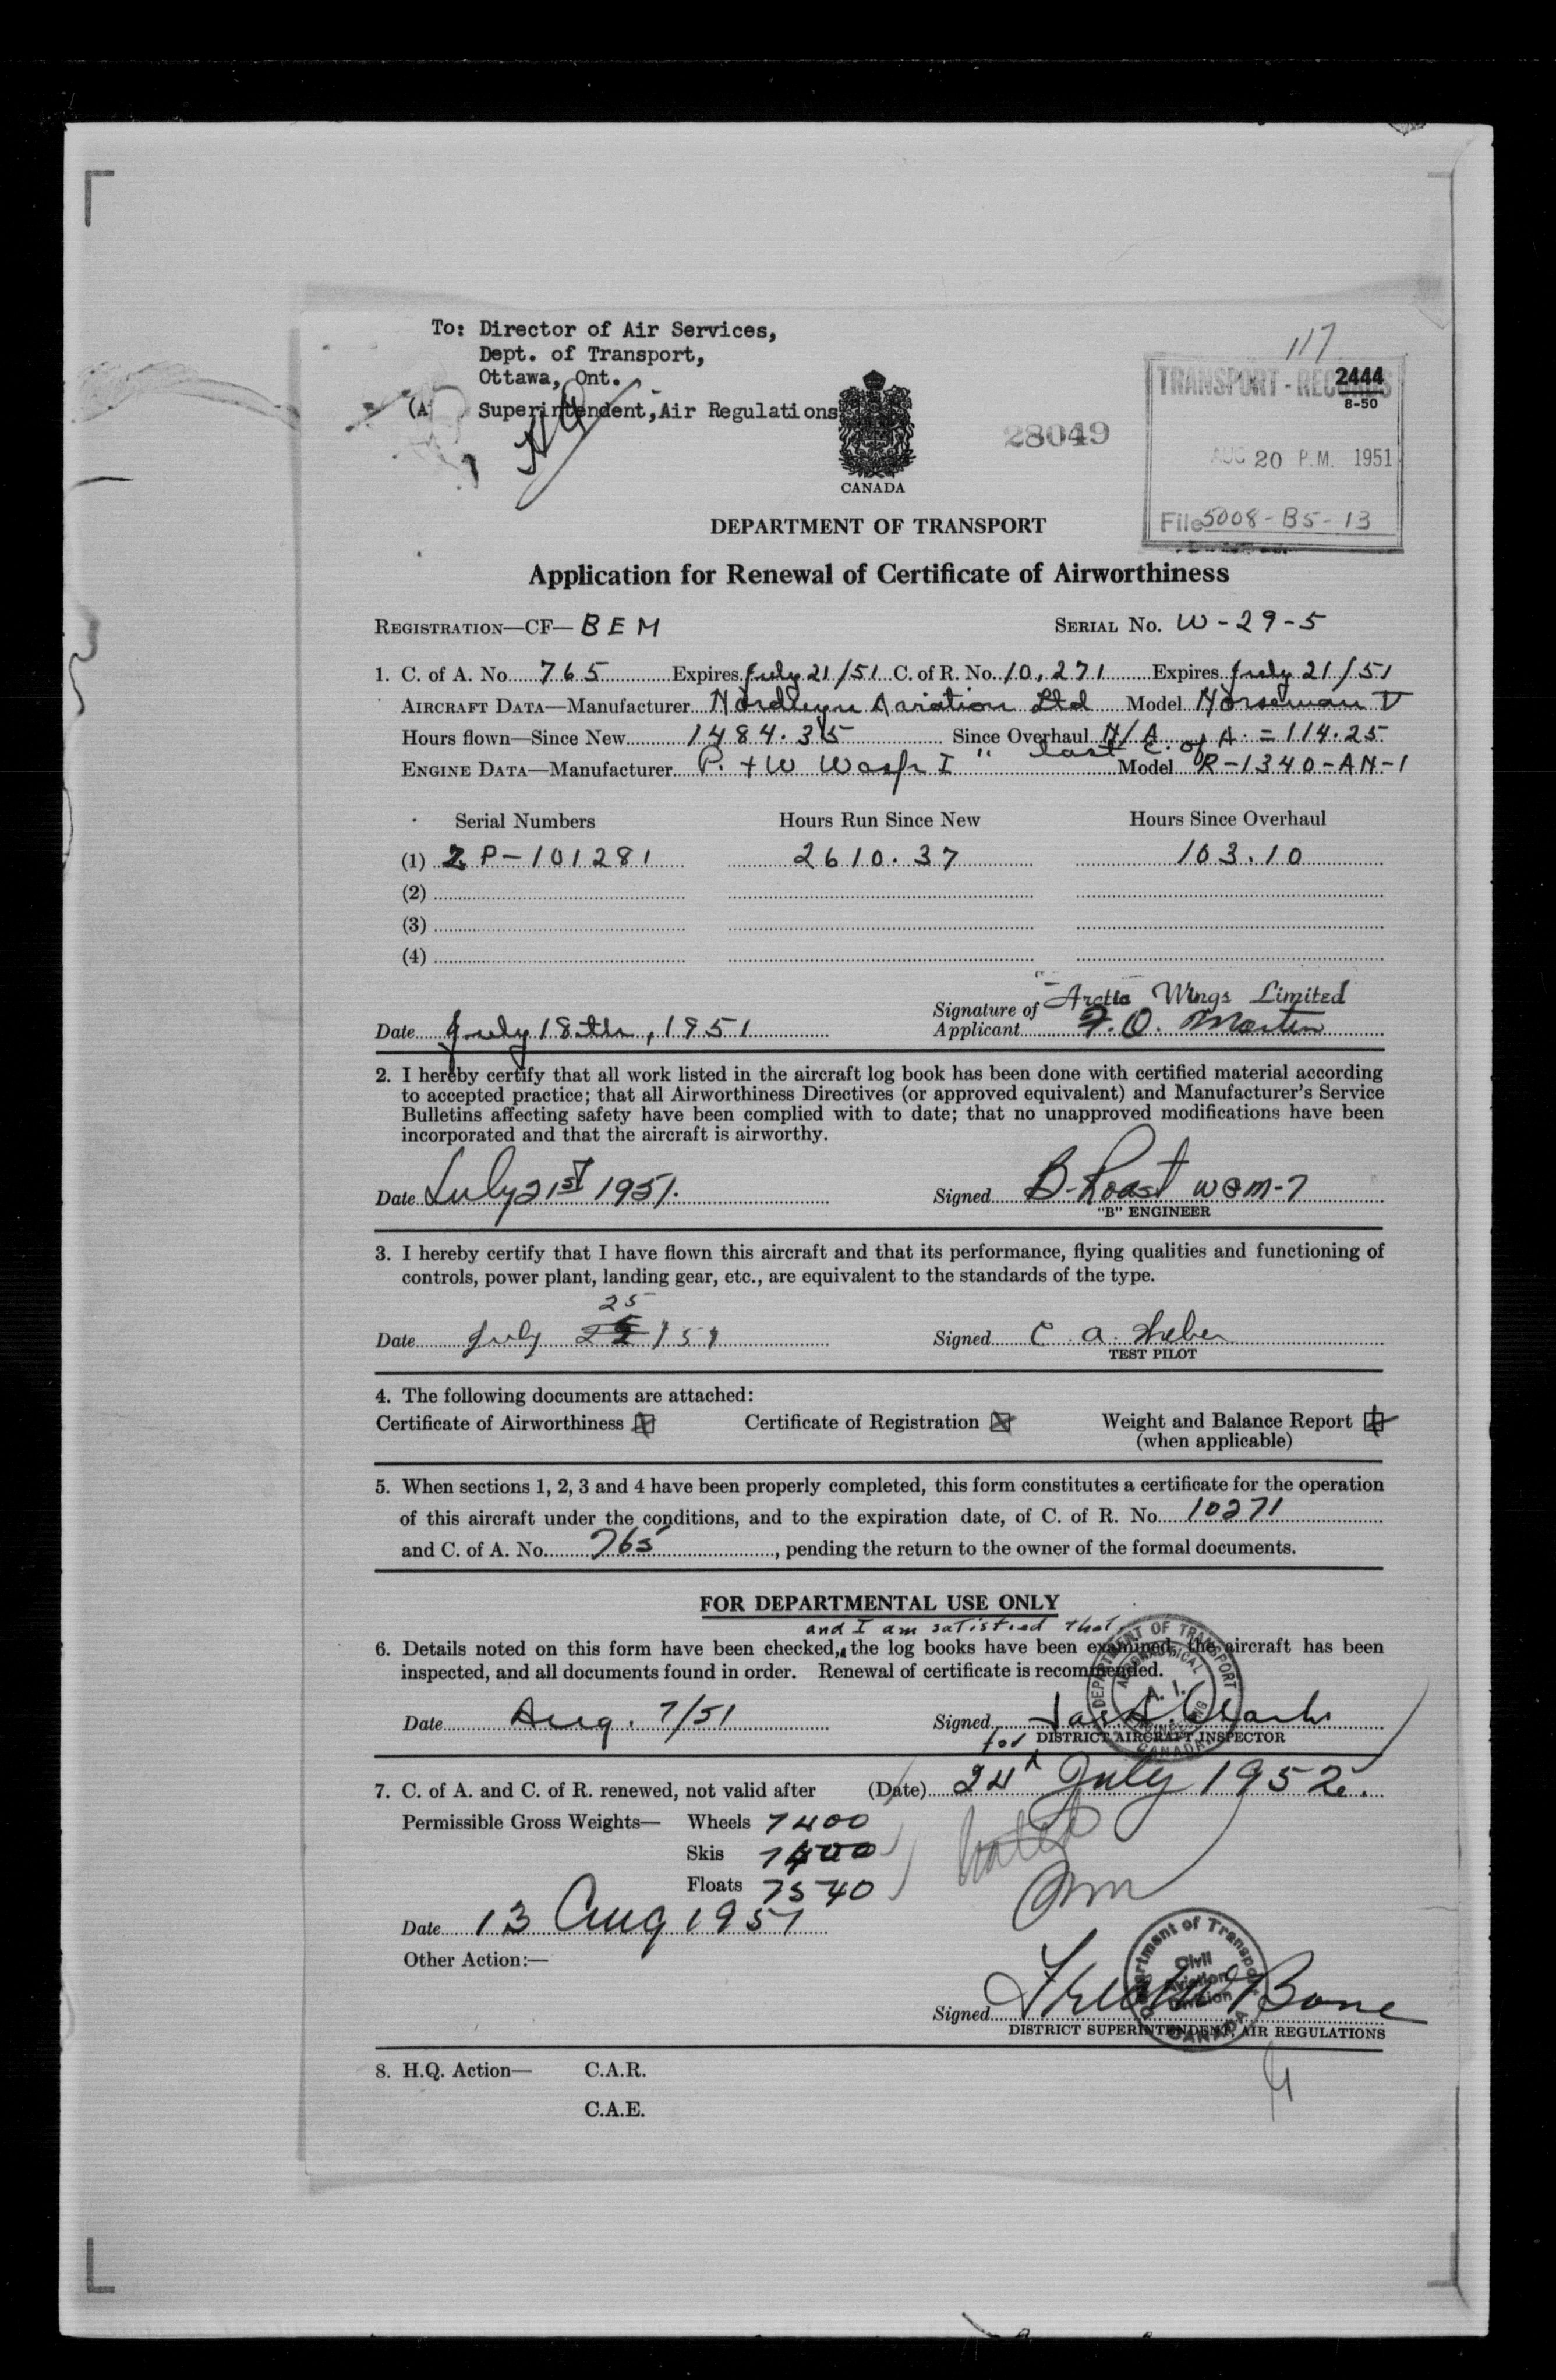 117
To: Director of Air Services,
Dept. of Transport,
Ottawa, Ont.
(A Superintendent, Air Regulations
CANADA
28049
TRANSPORT - RECORDS
2444
8-50
AUG 20 P.M. 1951
File 5008-B5-13
DEPARTMENT OF TRANSPORT
Application for Renewal of Certificate of Airworthiness
REGISTRATION—CF— BEM SERIAL No. W-29-5
1. C. of A. No. 765 Expires July 21/51 C. of R. No. 10,271 Expires July 21/51
AIRCRAFT DATA—Manufacturer Norduyn Aviation Ltd Model Norseman V
Hours flown—Since New 1484.35 Since Overhaul N/A
" last C. of A. = 114.25
ENGINE DATA—Manufacturer P. + W Wasp I Model R-1340-AN-1
Serial Numbers Hours Run Since New Hours Since Overhaul
(1) 2P-101281 2610.37 103.10
(2)
(3)
(4)
Arctic Wings Limited
Date July 18th, 1951 Signature of Applicant F. O. Martin
2. I hereby certify that all work listed in the aircraft log book has been done with certified material according
to accepted practice; that all Airworthiness Directives (or approved equivalent) and Manufacturer's Service
Bulletins affecting safety have been complied with to date; that no unapproved modifications have been
incorporated and that the aircraft is airworthy.
Date July 21st 1951. Signed B. Roast WGM-7
"B" ENGINEER
3. I hereby certify that I have flown this aircraft and that its performance, flying qualities and functioning of
controls, power plant, landing gear, etc., are equivalent to the standards of the type.
25
Date July /51 Signed C. A.
TEST PILOT
4. The following documents are attached:
Certificate of Airworthiness Certificate of Registration Weight and Balance Report
(when applicable)
5. When sections 1, 2, 3 and 4 have been properly completed, this form constitutes a certificate for the operation
of this aircraft under the conditions, and to the expiration date, of C. of R. No. 10271
and C. of A. No. 765, pending the return to the owner of the formal documents.
FOR DEPARTMENTAL USE ONLY
and I am satisfied that
6. Details noted on this form have been checked, the log books have been examined, the aircraft has been
inspected, and all documents found in order. Renewal of certificate is recommended.
DEPARTMENT OF TRANSPORT
AERONAUTICAL
A. I.
ENGINEERING
CANADA
Date Aug. 7/51 Signed
for DISTRICT AIRCRAFT INSPECTOR
7. C. of A. and C. of R. renewed, not valid after (Date) 24th July 1952.
Permissible Gross Weights— Wheels 7400
Skis 7400
Floats 7540
noted
Date 13 Aug 1951
Other Action:—
Department of Transport
Civil
Aviation
Division
CANADA
Signed Bone
DISTRICT SUPERINTENDENT, AIR REGULATIONS
8. H.Q. Action— C.A.R.
C.A.E.